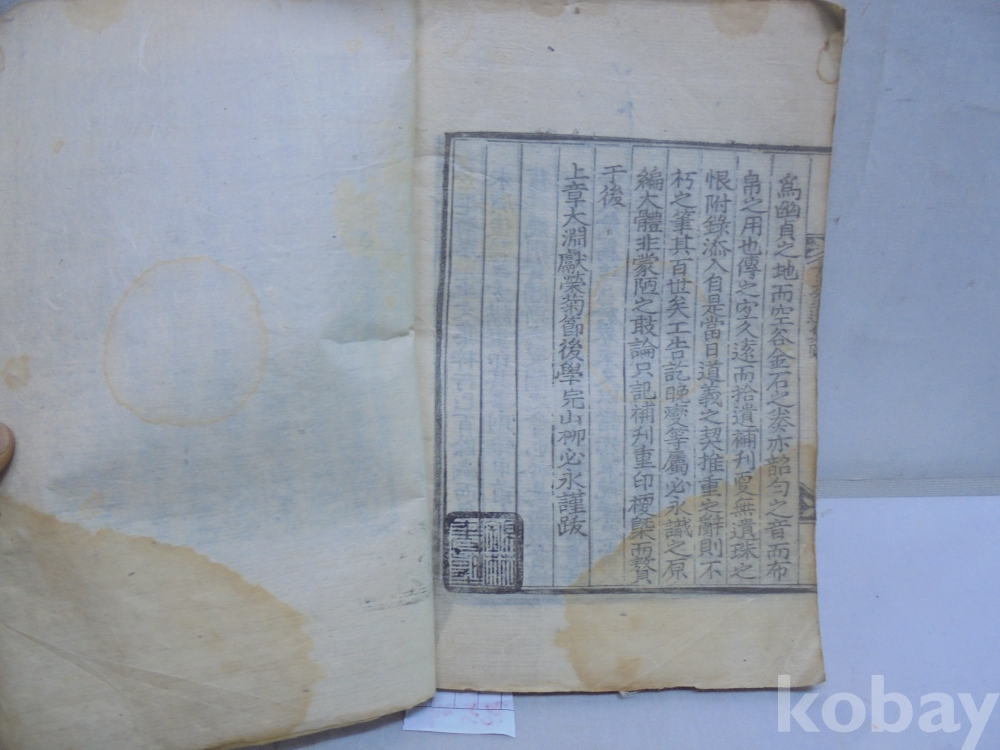 爲幽貞之地而空谷金石之奏亦韶勻之音而布
帛之用也傳之定久遠而拾遺補刊更無遺珠之
恨附錄添入自是當日道義之契推重之辭則不
朽之筆其百世矣工告訖晚燮等屬必永識之原
編大體非蒙陋之敢論只記補刋重印梗槩而贅
于後
上章大淵獻榮菊節後學完山柳必永謹跋
kobay